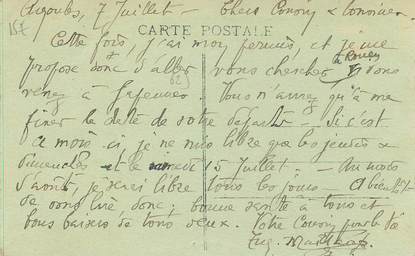 7 Juillet - Chers Cousin &
CARTE POSTALE
Cette fois, j'ai mon permis, et je me
propose donc d'aller vous chercher à Rouen
Vous n'aurez qu'à me
fixer la date de votre Si c'est
ce mois-ci, je ne suis libre que les jeudis &
dimanches et le 15 Juillet. - Au mois
d'août, je serai libre tous les jours. A bientôt
de vous lire, donc; bonne santé à tous et
bons baisers de tous deux. Votre Cousin